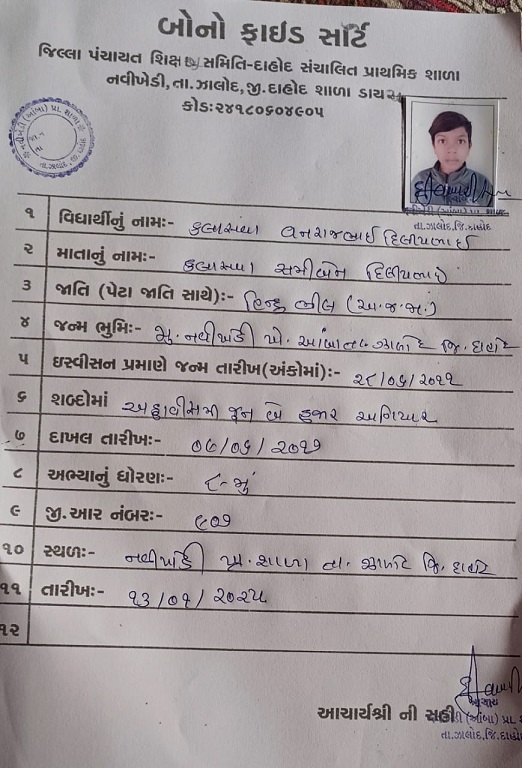 બોનો ફાઇડ સર્ટિ
જિલ્લા પંચાયત શિક્ષણ સમિતિ-દાહોદ સંચાલિત પ્રાથમિક શાળા
નવીખેડી, તા.ઝાલોદ, જી.દાહોદ શાળા ડાયસ
કોડ:૨૪૧૮૦૬૦૪૯૦૫
૧ વિદ્યાર્થીનું નામ:- વનરાજભાઈ દિલીપભાઈ
તા.ઝાલોદ,જિ.દાહોદ
૨ માતાનું નામ:- સમીબેન દિલીપભાઈ
૩ જાતિ (પેટા જાતિ સાથે):- હિન્દુ ભીલ (અ.જ.જા.)
૪ જન્મ ભુમિ:- મુ. નવીખેડી પો. આંબા તા. ઝાલોદ જિ. દાહોદ
૫ ઇસ્વીસન પ્રમાણે જન્મ તારીખ(અંકોમાં):- ૨૮/૦૬/૨૦૧૧
૬ શબ્દોમાં અઠ્ઠાવીસમી જૂન બે હજાર અગિયાર
૭ દાખલ તારીખ:- ૦૭/૦૬/૨૦૧૭
૮ અભ્યાનું ધોરણ:- ૮-મું
૯ જી.આર નંબર:- ૯૦૧
૧૦ સ્થળ:- નવીખેડી પ્રા. શાળા તા. ઝાલોદ જિ. દાહોદ
૧૧ તારીખ:- ૧૩/૦૧/૨૦૨૫
૧૨
આચાર્ય
આચાર્યશ્રી ની સહી (આંબા) પ્રા.
તા.ઝાલોદ,જિ.દાહોદ